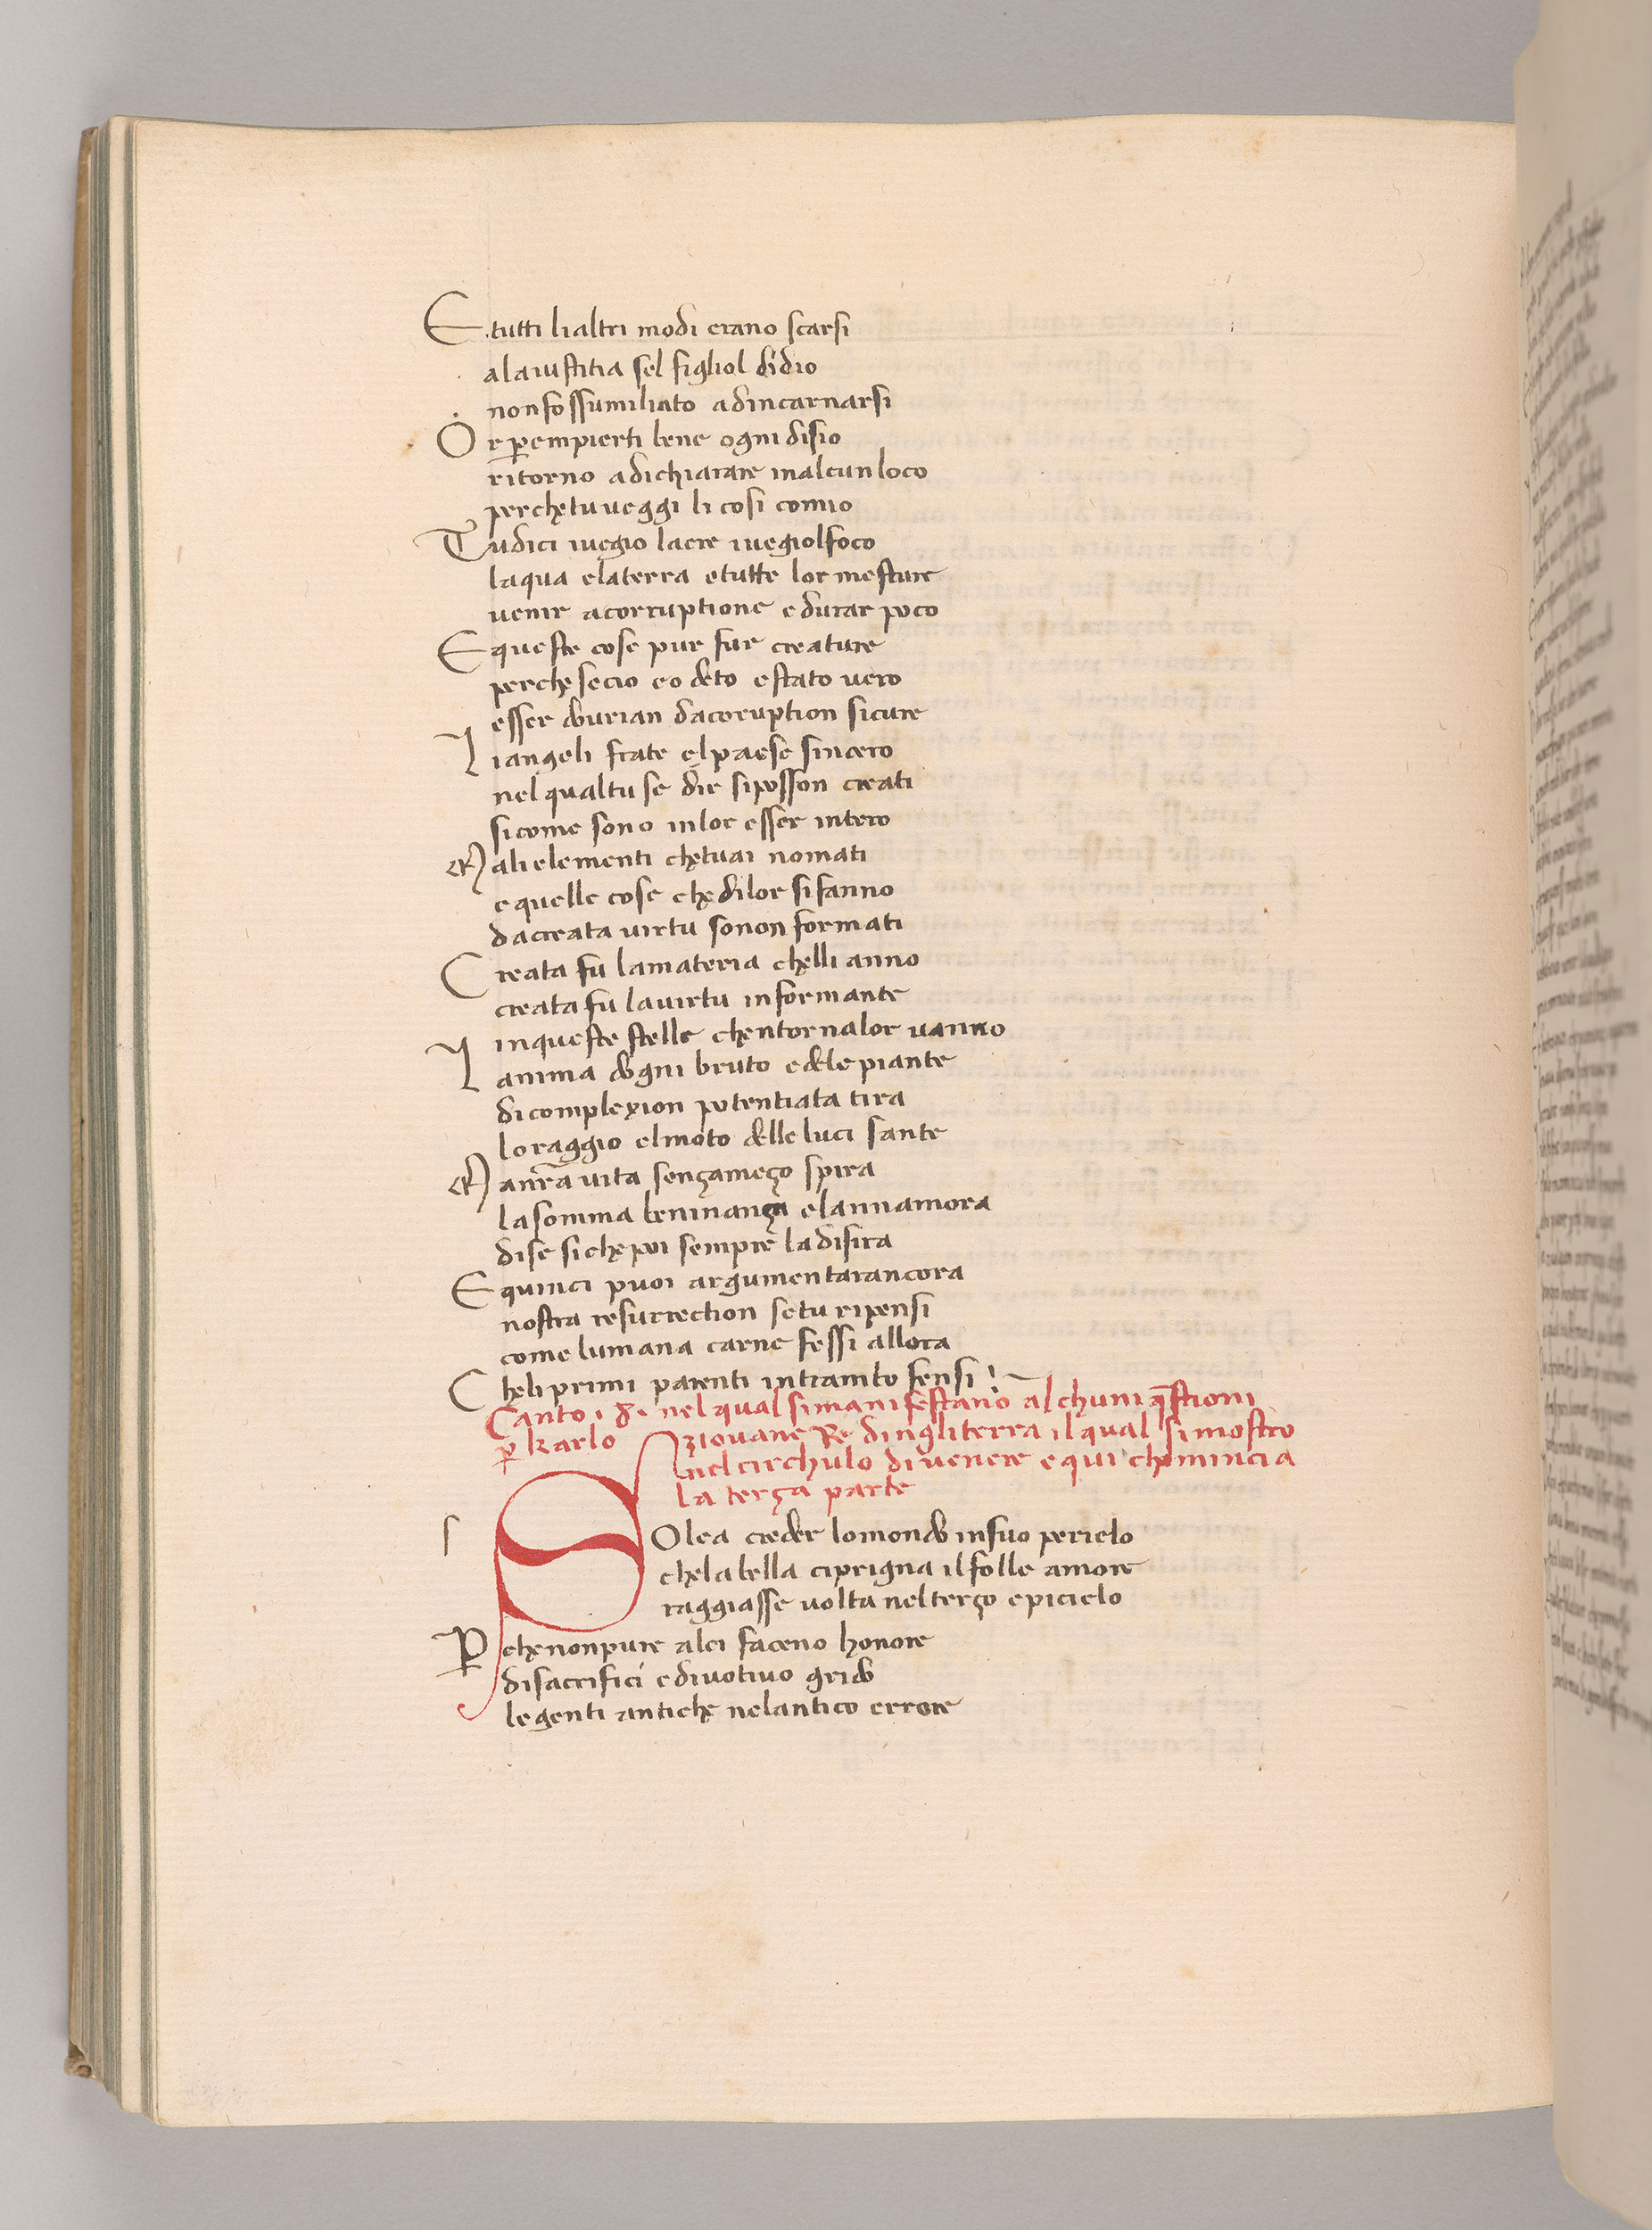 E tutti li altri modi erano scarsi
ala iustitia sel figliol didio
non fossumiliato adincarnarsi
Or p empierti bene ogni disio
ritorno adichiarare inalcun loco
perche tu ueggi li cosi comio
Tu dici iuegio laere iuegiolfoco
laqua elaterra e tutte lor mesture
uenir acorruptione e durar poco
E queste cose pur fur creature
perche secio eo deto e stato uero
esser dourian dacoruption sicure
Li angeli frate el paese sincero
nel qualtu se dir siposson creati
sicome sono inlor esser intero
Ma li elementi chetuai nomati
e quelle cose che dilor si fanno
dacreata uirtu sonon formati
Creata fu lamateria chelli anno
creata fu lauirtu informante
inqueste stelle chentornalor uanno
Lanima dogni bruto e dele piante
di complexion potentiata tira
lo raggio elmoto delle luci sante
Ma nra uita sença meço spira
la somma beninança e lannamora
dise siche poi sempre la disira
E quinci puoi argumentarancora
nostra resurrection setu ripensi
come lumana carne fessi allora
Cheli primi parenti intrambo fensi
Canto .8. nel qual simanifestano alchuni qstioni
p karlo Giouane Re dingliterra il qual si mostro
nel circhulo di uenere e qui chomincia
la terça parte
s SOlea creder lomondo insuo periclo
chela bella ciprigna il folle amore
raggiasse uolta nel terço epiciclo
P che non pure alei faceno honore
di sacrifici e diuotiuo grido
le genti antiche nelantico errore